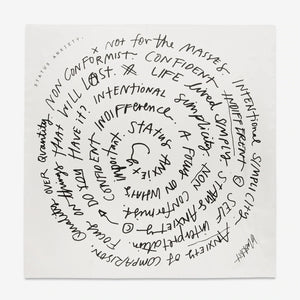 STATUS ANXIETY.
x NOT for the MASSES. INTENTIONAL SIMPLICITY
ANXIETY of COMPARISON. Quality OVER Quantity. NON CONFORMIST. CONFIDENT INDIFFERENT © SELF interpretation.
FOCUS ON things THAT WILL LAST. LIFE lived simply. STATUS ANXIETY ©
HAVE IT? INTENTIONAL simplicity. NON CONFORMIST.
CONFIDENT INDIFFERENCE. A FOCUS ON WHAT'S important.
STATUS ANXIETY